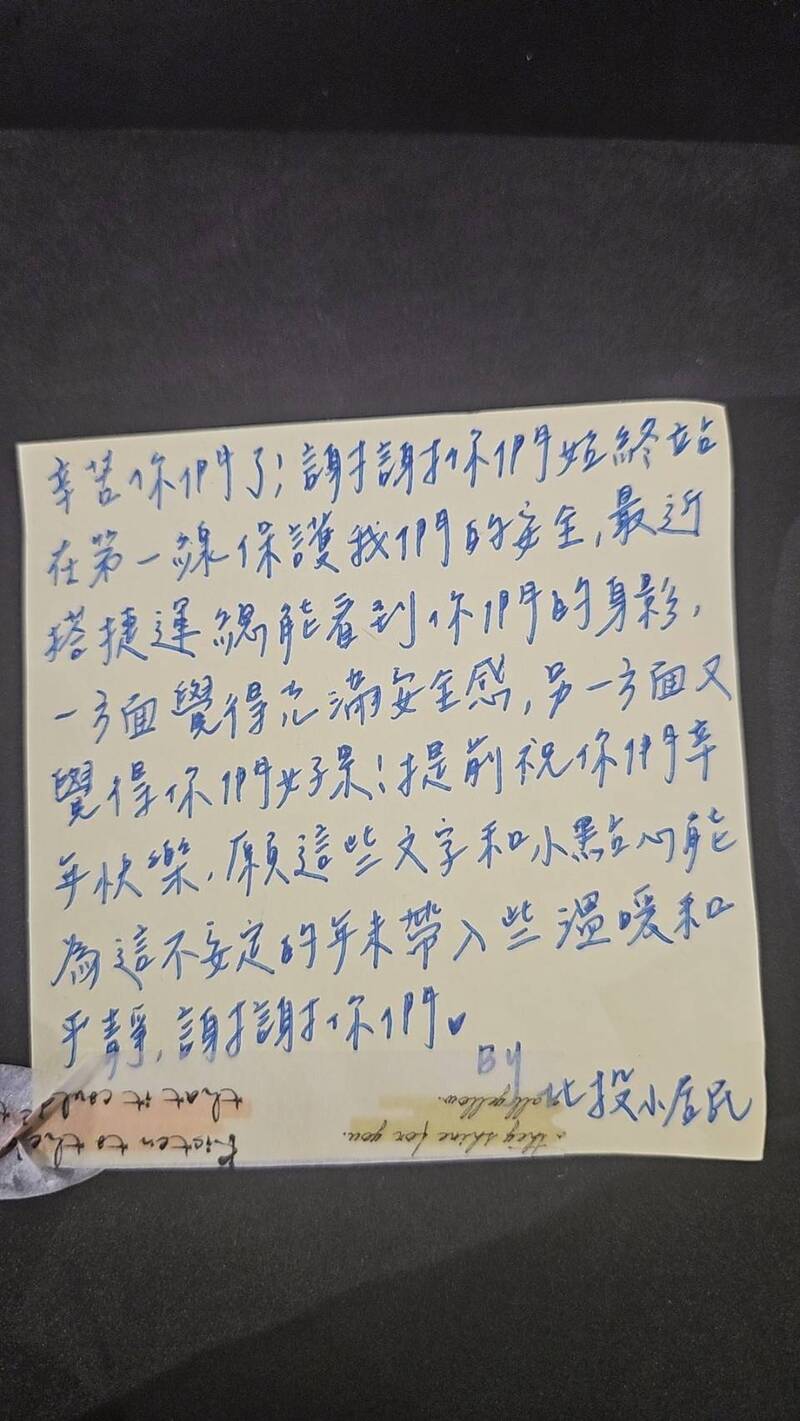 辛苦你們了!謝謝你們始終站
在第一線保護我們的安全,最近
搭捷運總能看到你們的身影,
一方面覺得充滿安全感,另一方面又
覺得你們好累!提前祝你們辛
年快樂,願這些文字和小點心能
為這不安定的年末帶入些溫暖和
平靜,謝謝你們。
BY
北投小居民
that it could
Listen to the
all yellow.
they shine for you.